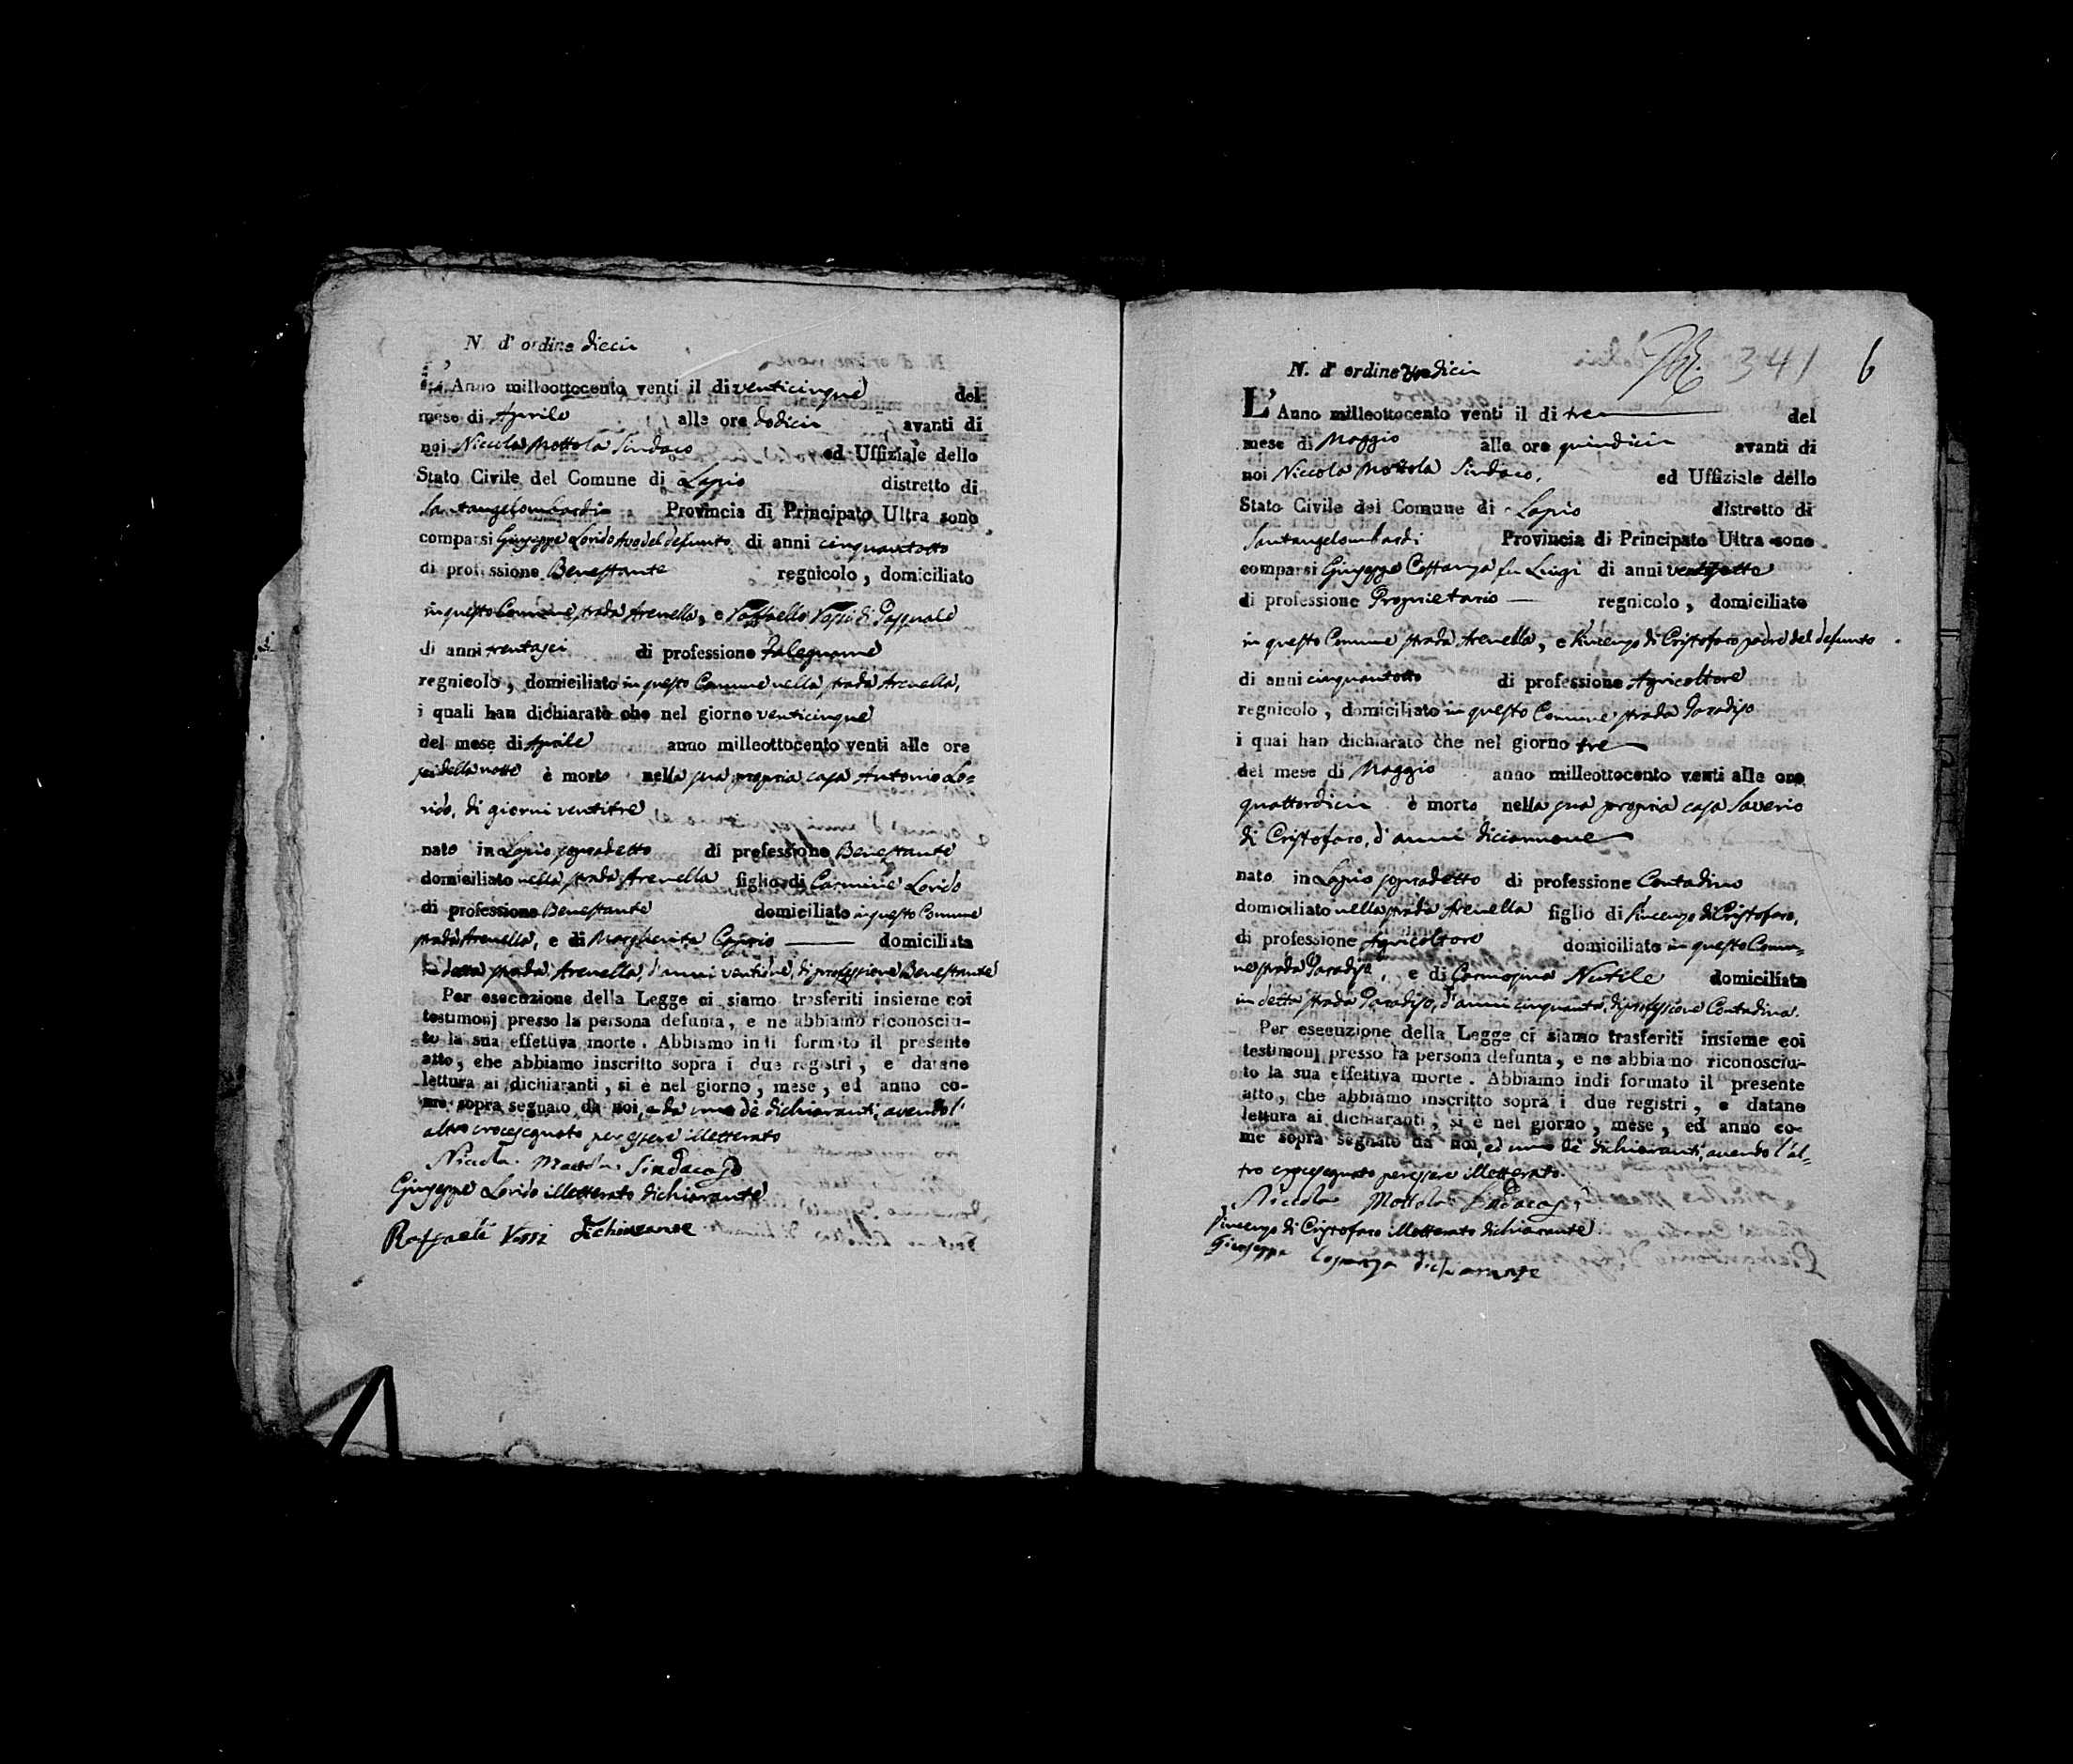 N. d' ordine dieci
L' Anno milleottocento venti il di venticinque del
mese di Aprile alle ore dodici avanti di
noi Niccola Mottola Sindaco ed Uffiziale dello
Stato Civile del Comune di Lapio distretto di
Santangelombardi Provincia di Principato Ultra sono
comparsi Giuseppe Lorido Avo del defunto, di anni cinquantotto
di professione Benestante regnicolo, domiciliato
in questo Comune strada Arenella, e Raffaello di Pasquale
di anni trentasei di professione Falegname
regnicolo, domiciliato in questo Comune nella strada Arenella,
i quali han dichiarato che nel giorno venticinque
del mese di Aprile anno milleottocento venti alle ore
sei della notte è morto nella sua propria casa Antonio Lo=
rido, di giorni ventitre
nato in Lapio sopradetto di professione Benestante
domiciliato nella strada Arenella figlio di Carmine Lorido
di professione Benestante domiciliato in questo Comune
strada Arenella, e di Margherita Caprio domiciliata
in detta strada Arenella, d'anni, di professione Benestante
Per esecuzione della Legge ci siamo trasferiti insieme coi
testimonj presso la persona defunta, e ne abbiamo riconosciu-
to la sua effettiva morte. Abbiamo indi formato il presente
atto, che abbiamo inscritto sopra i due registri, e datane
lettura ai dichiaranti, si è nel giorno, mese, ed anno co-
me sopra segnato da noi, e da uno de' dichiaranti, avendo l'
altro crocesegnato per essere illetterato
Niccola Mottola Sindaco
Giuseppe Lorido illetterato dichiarante
Raffaele dichiarante
341 6
N. d' ordine Undici
L' Anno milleottocento venti il di tre del
mese di Maggio alle ore quindici avanti di
noi Niccola Mottola Sindaco, ed Uffiziale dello
Stato Civile del Comune di Lapio distretto di
Santangelombardi Provincia di Principato Ultra sono
comparsi Giuseppe Costanza fu Luigi di anni
di professione Proprietario regnicolo, domiciliato
in questo Comune strada Arenella, e Vincenzo di Cristofaro padre del defunto
di anni cinquantotto di professione Agricoltore
regnicolo, domiciliato in questo Comune strada Paradiso
i quai han dichiarato che nel giorno tre
del mese di Maggio anno milleottocento venti alle ore
quattordici è morto nella sua propria casa Saverio
di Cristofaro, d'anni diciannove
nato in Lapio sopradetto di professione Contadino
domiciliato nella strada Arenella figlio di Vincenzo di Cristofaro,
di professione Agricoltore domiciliato in questo Comu=
ne strada Paradiso, e di Carmosina Nutile domiciliata
in detta strada Paradiso, d'anni cinquanta, di professione Contadina.
Per esecuzione della Legge ci siamo trasferiti insieme coi
testimonj presso la persona defunta, e ne abbiamo riconosciu-
to la sua effettiva morte. Abbiamo indi formato il presente
atto, che abbiamo inscritto sopra i due registri, e datane
lettura ai dichiaranti, si è nel giorno, mese, ed anno co-
me sopra segnato da noi, ed uno de' dichiaranti, avendo l'al=
tro crocesegnato per essere illetterato.
Niccola Mottola Sindaco
Vincenzo di Cristofaro illetterato dichiarante
Giuseppe Costanza dichiarante